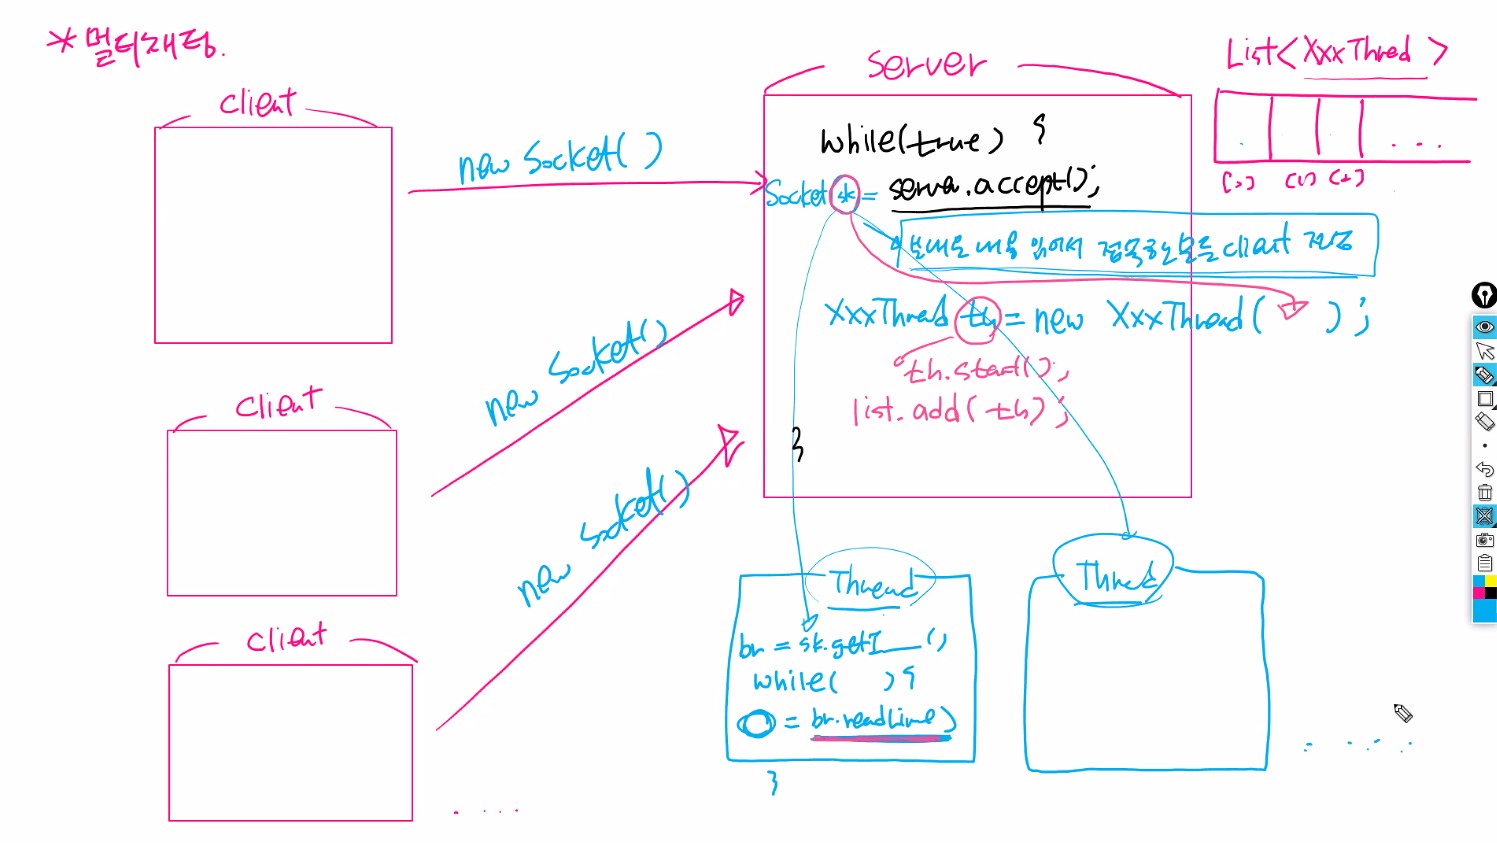 *멀티채팅.
client
new Socket()
client
new Socket()
client
new Socket()
. . . .
Server
while(true) {
Socket sk = server.accept();
보내온 내용 읽어서 접속한 모든 client 전송
XxxThread th = new XxxThread( );
th.start();
list.add(th);
}
List<XxxThred>
. . .
[0] [1] [2]
Thread
br = sk.getI___();
while( ) {
O = br.readLine()
}
Thred
. . . .